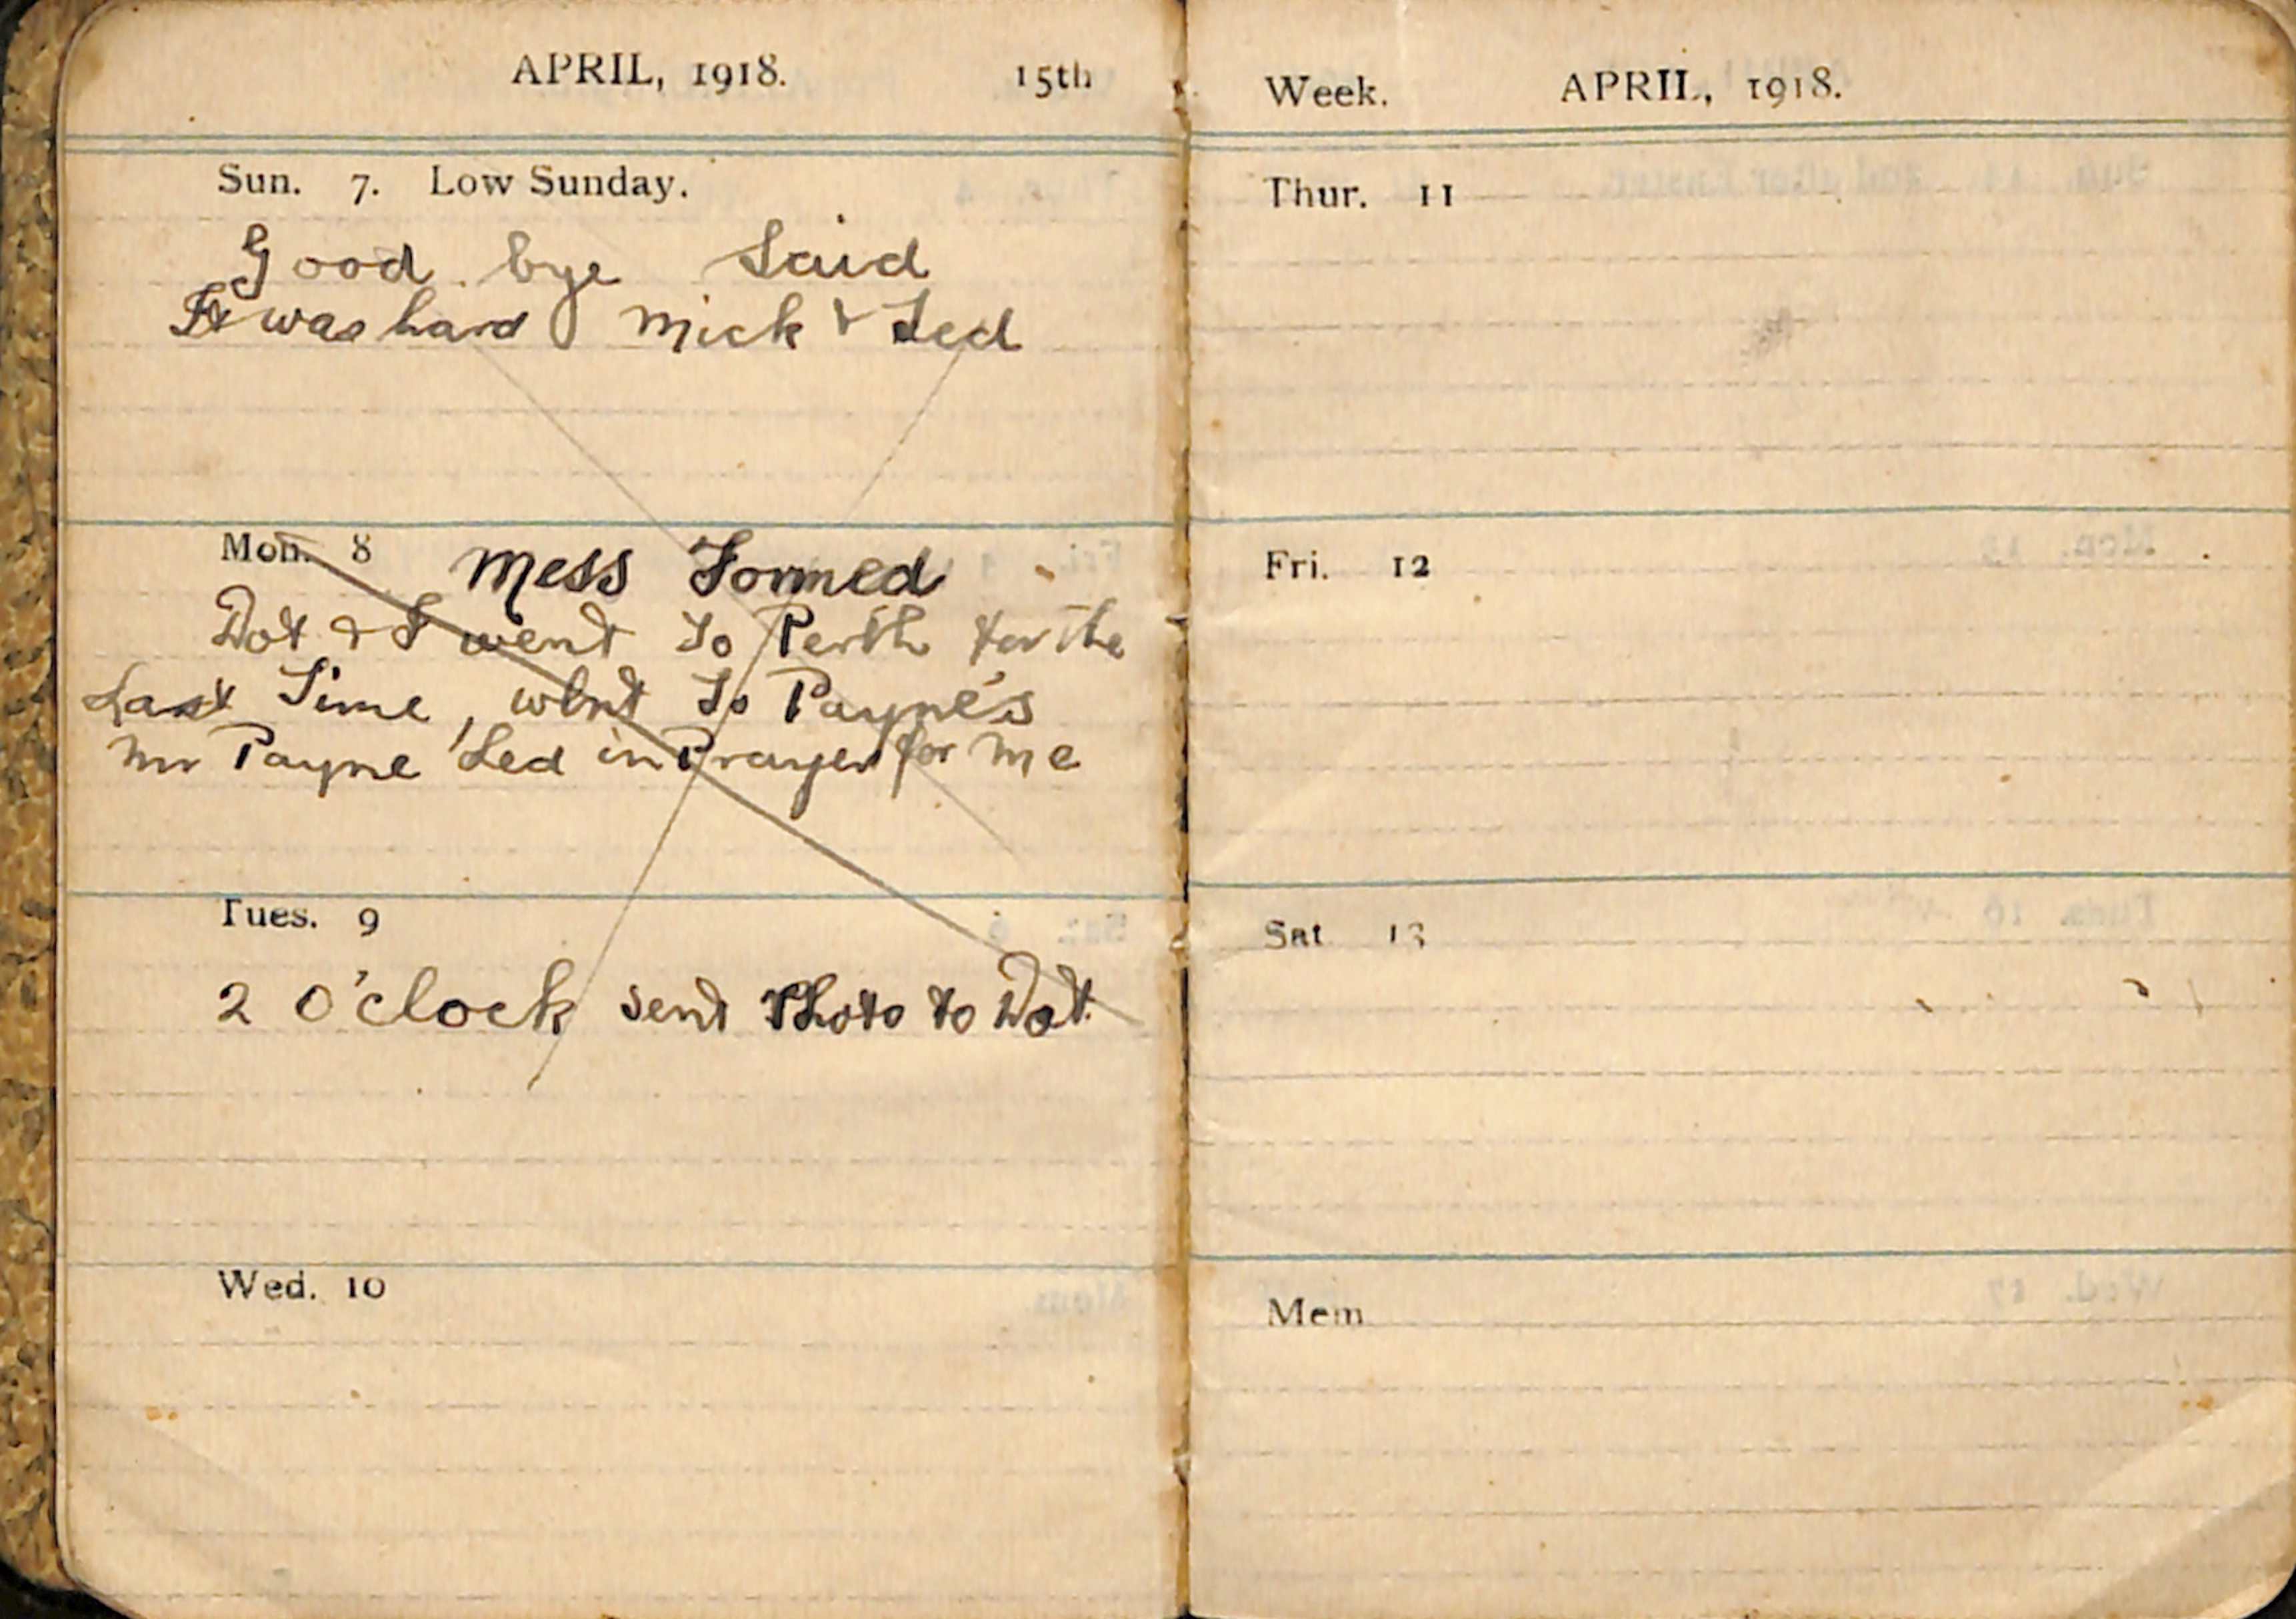 APRIL, 1918. 15th
Sun. 7. Low Sunday.
Good bye Said
It was hard Mick & Ted
Mon. 8 Mess Formed
Dot & I went To Perth for the
Last Time, went To Payne's
Mr Payne Led in Prayer for me
Tues. 9
2 O'clock send Photo to Dot.
Wed. 10
Week. APRIL, 1918.
Thur. 11
Fri. 12
Sat 13
Mem